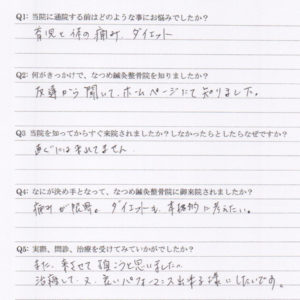 Q1: 当院に通院する前はどのような事にお悩みでしたか？
育児と体の痛み、ダイエット
Q2: 何がきっかけで、なつめ鍼灸整骨院を知りましたか？
友達から聞いて、ホームページにて知りました。
Q3 当院を知ってからすぐ来院されましたか？しなかったらとしたらなぜですか？
すぐには来れてません
Q4: なにが決め手となって、なつめ鍼灸整骨院に御来院されましたか？
痛みが限界。ダイエットも、本格的に考えたい。
Q5: 実際、問診、治療を受けてみていかがでしたか？
また、来させて頂こうと思いました。
治療して、又、良いパフォーマンス出来る様にしたいです。